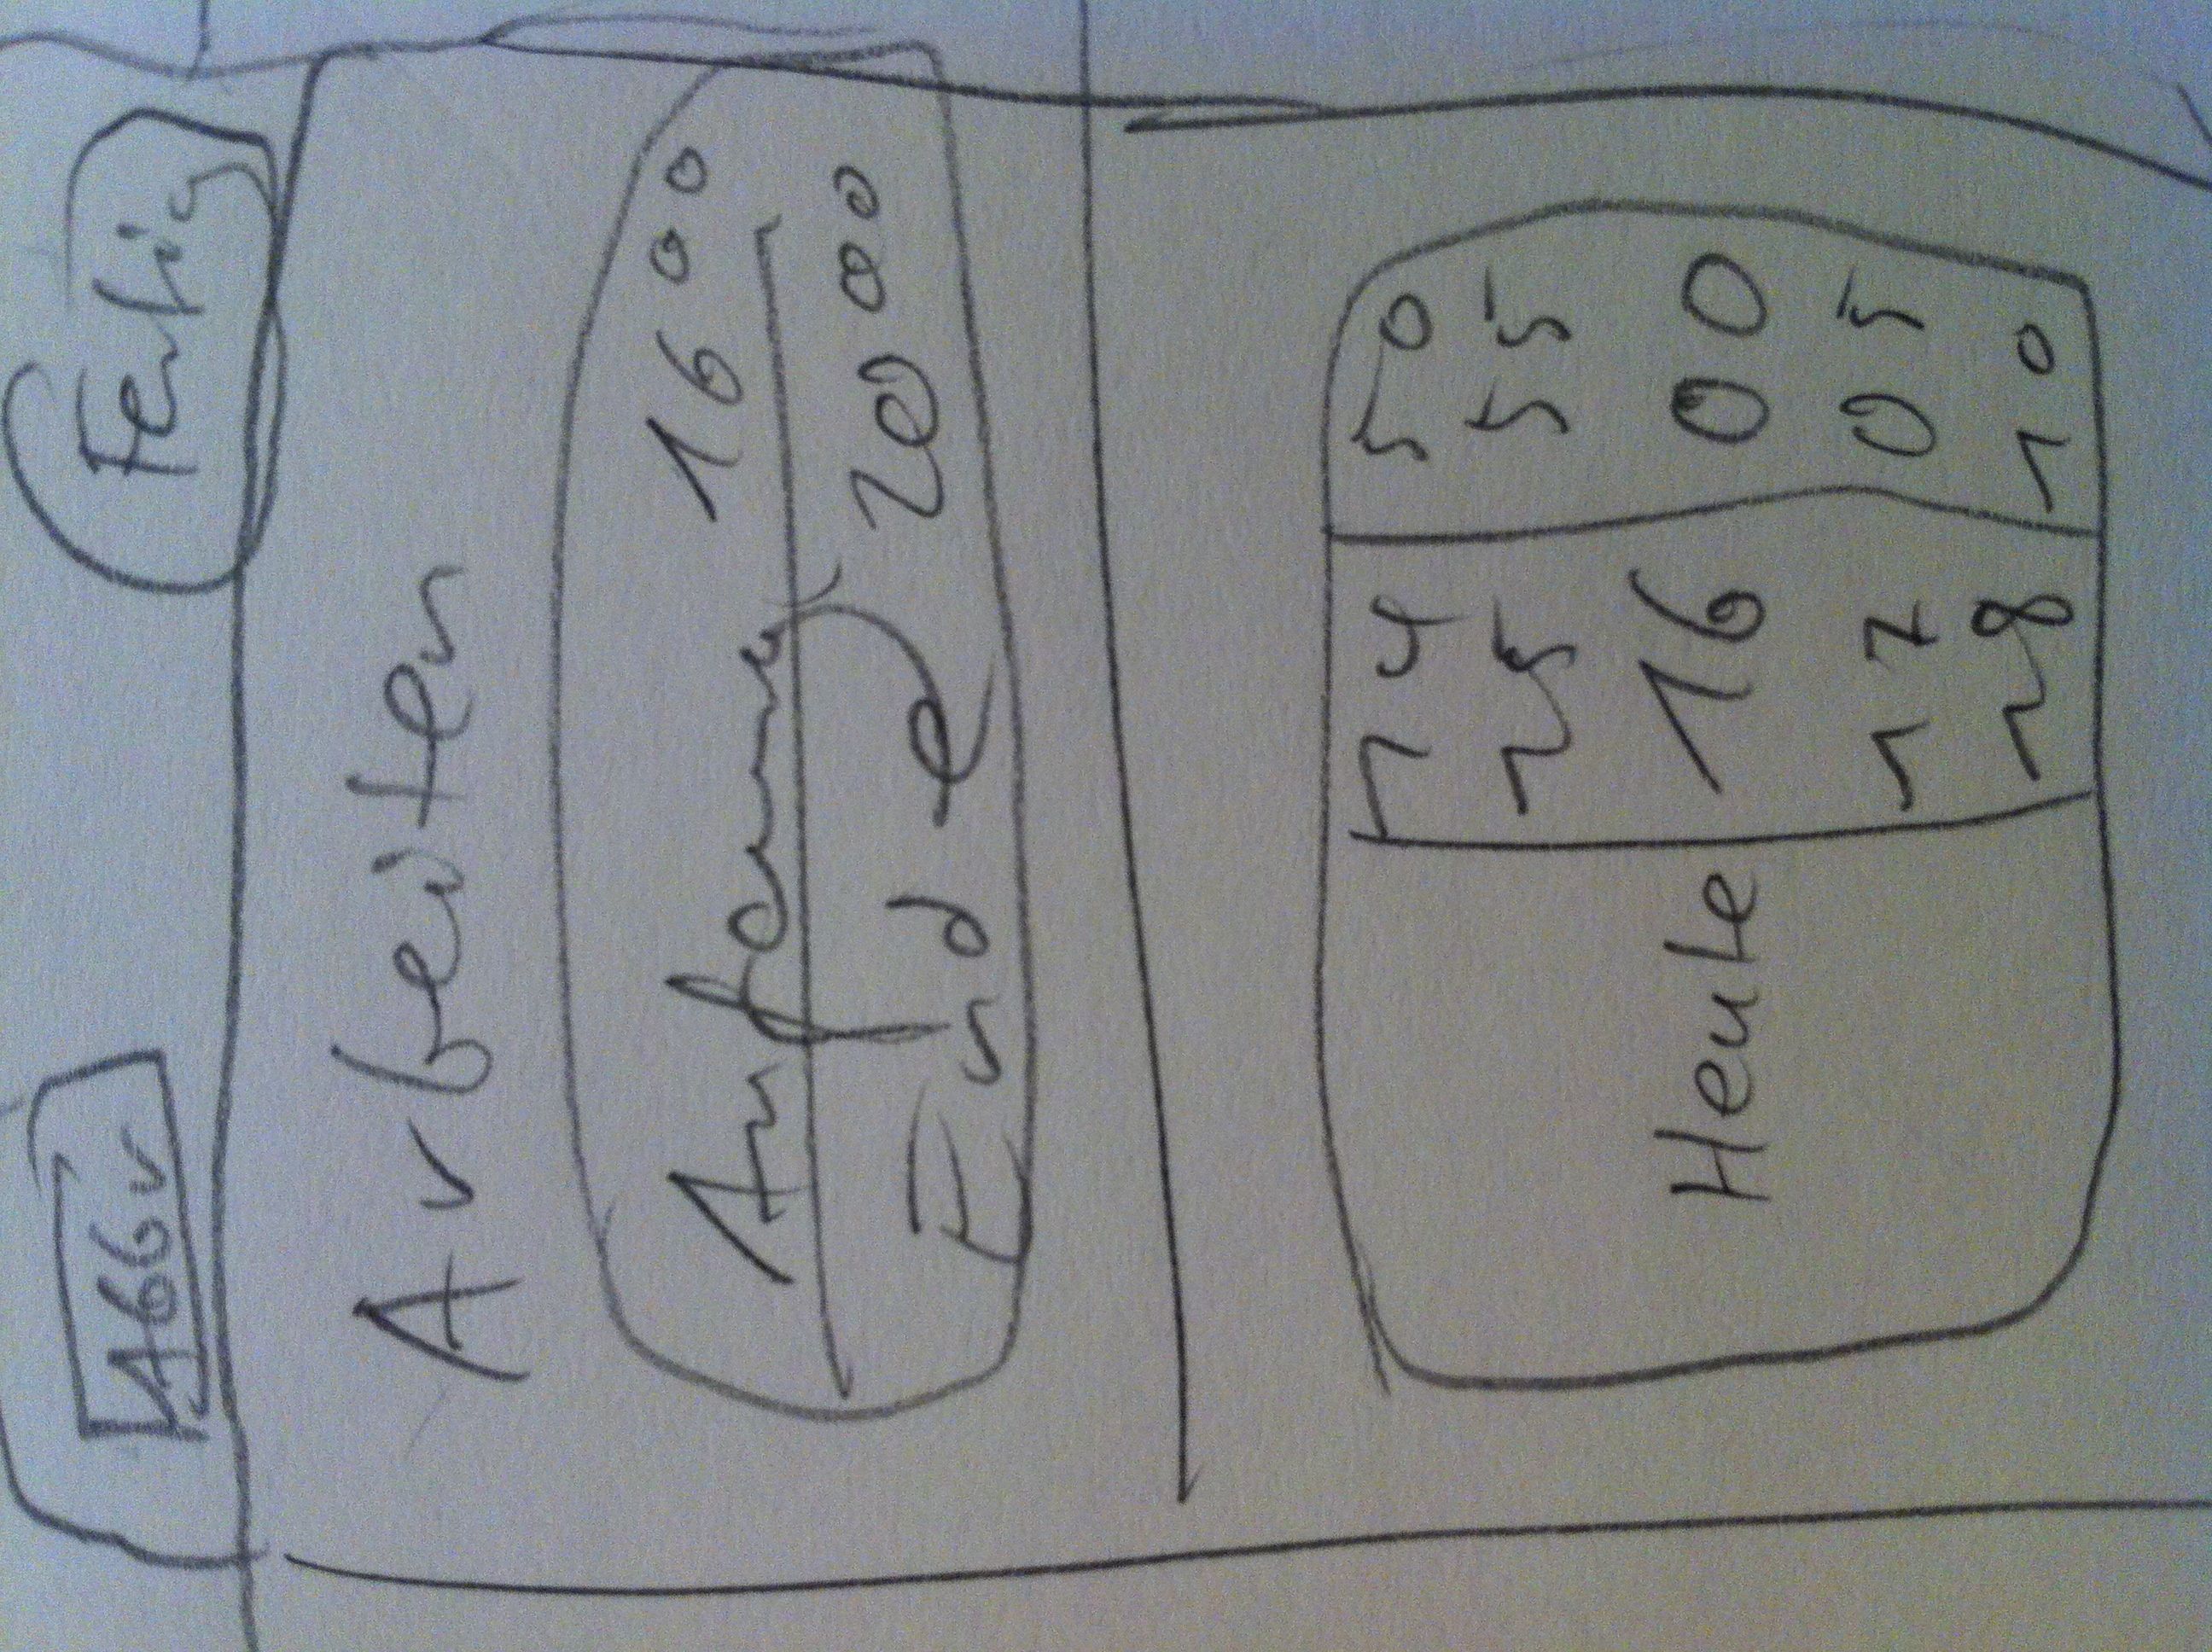 Abbr Fertig
Arbeiten
Anfang 16 00
Ende 20 00
14 50
15 55
Heute 16 00
17 05
18 10